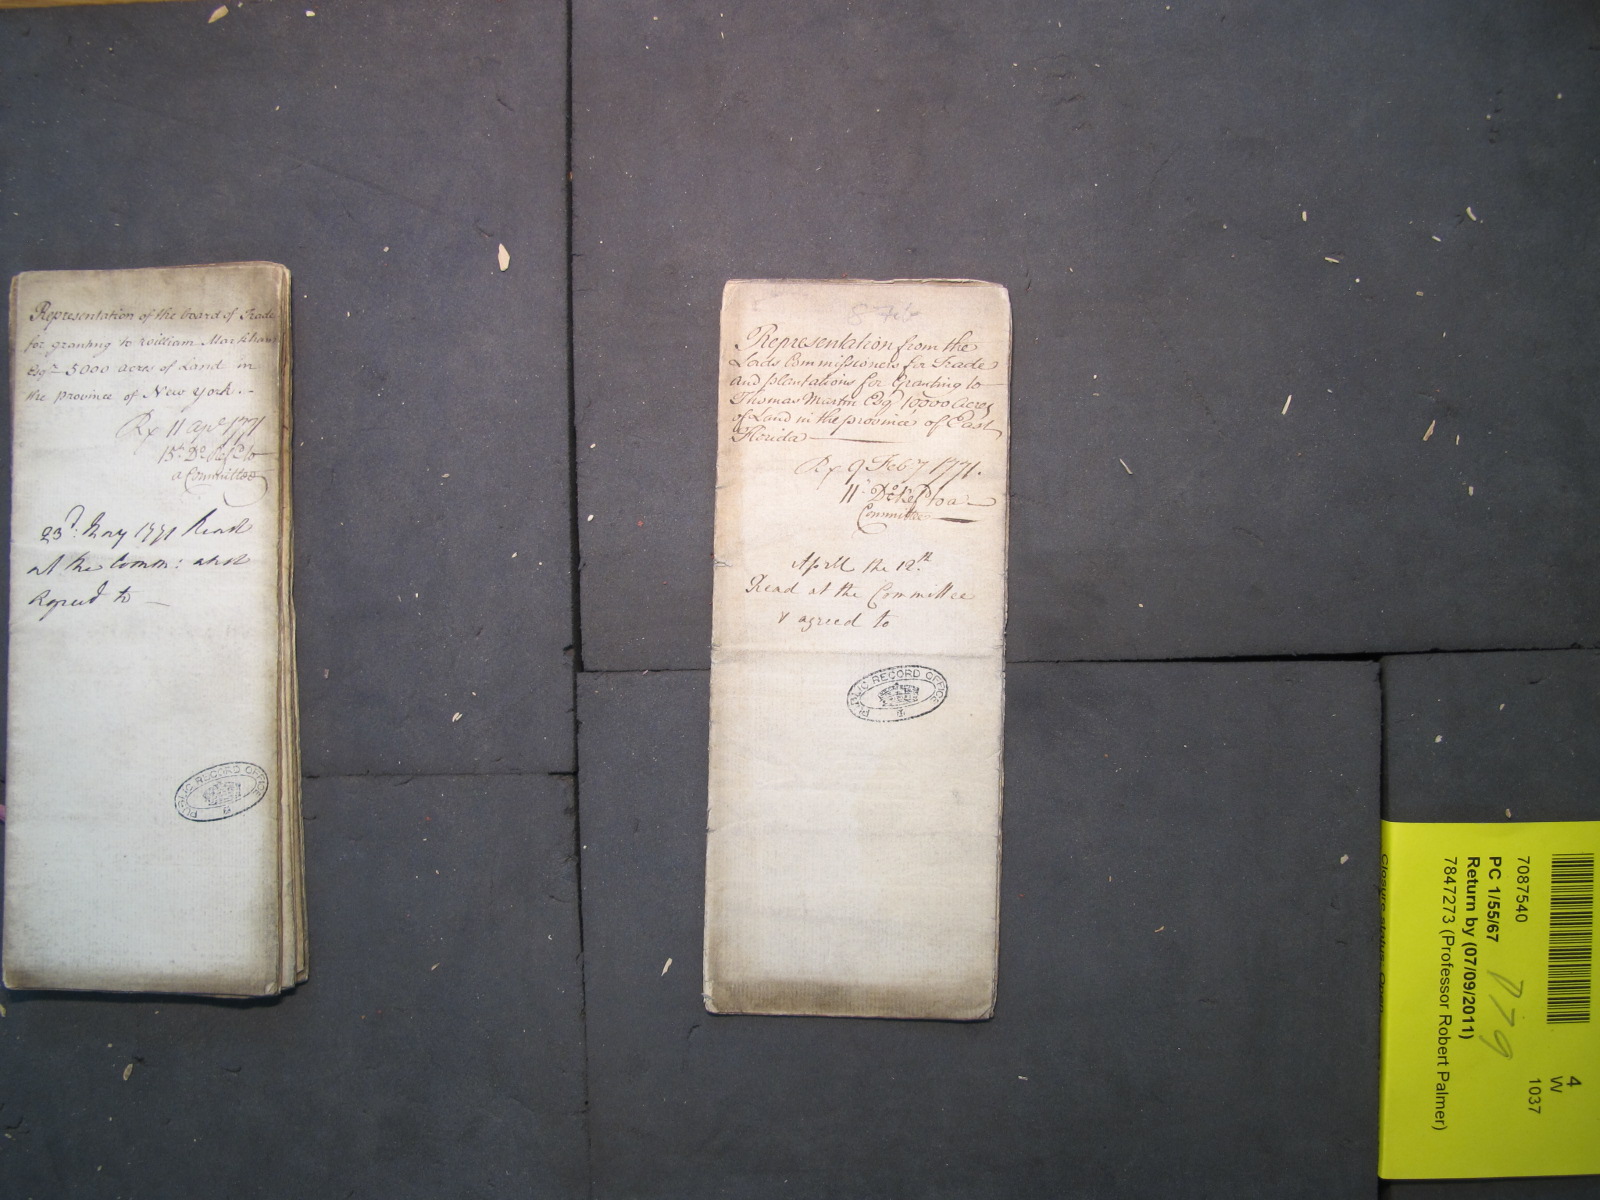 Representation of the board of Trade
for granting to William Markham
Esqr. 5000 acres of Land in
the province of New York.-
Rx 11 apr 1771
15th. Do. Refd to
a Committee
23d. May 1771 Read
at the Comm: and
Agreed to —
PUBLIC RECORD OFFICE
8 Feb
Representation from the
Lords Commissioners for Trade
and plantations for Granting to
Thomas Martin Esqr 10,000 acres
of Land in the province of East
Florida
Rx 9 Feby 1771.
11 Do. Refd to a
Committee
Aprll the 12th.
Read at the Committee
& agreed to
PUBLIC RECORD OFFICE
4
W
1037
7087540
PC 1/55/67
Return by (07/09/2011)
7847273 (Professor Robert Palmer)
Closure status: Open